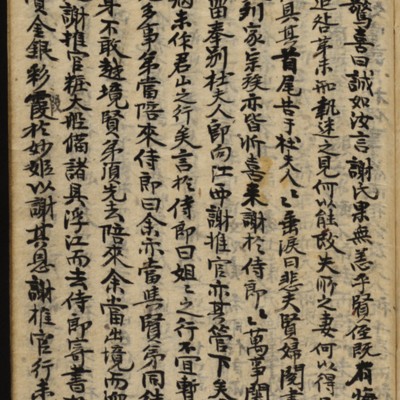 驚喜曰誠如汝言謝氏果無恙乎賢侄既有悔
追咎弟未知執迷之見何以能改失所之妻何以得
具其首尾告于杜夫人〻垂淚曰悲夫賢婦聞書
列家宗族亦皆忻喜來謝於侍郎〻萬事関
留泰別杜夫人即向江西謝推官亦其管下矣
病未作君山之行矣言於侍郎曰姐〻之行不宜暫
多事弟當陪來侍郎曰余亦當與賢弟同往
身不敢越境賢弟須先去陪來余當出境而迎
謝推官粧大船備諸具浮江而去侍郎寄書
金銀彩霞於妙姬以謝其恩謝推官行未